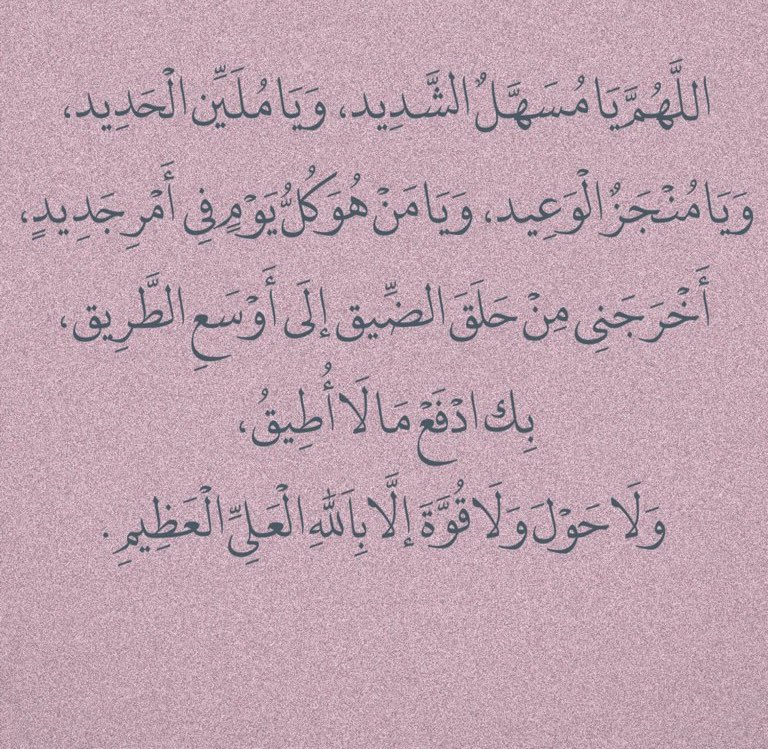 اللَّهُمَّ يَا مُسَهَّلُ الشَّدِيد، وَيَا مُلَيِّن الْحَدِيد،
وَيَا مُنْجَزُ الْوَعِيد، وَيَا مَنْ هُوَ كُلُّ يَوْمٍ فِي أَمْرِ جَدِيدٍ،
أَخْرَجَنِي مِنْ حَلَقَ الضِّيق إلَى أَوْسَعِ الطَّرِيق،
بِك ادْفَعْ مَا لَا أُطِيقُ،
وَلَا حَوْلَ وَلَا قُوَّةَ إلَّا بِاَللَّهِ الْعَلِيِّ الْعَظِيمِ.